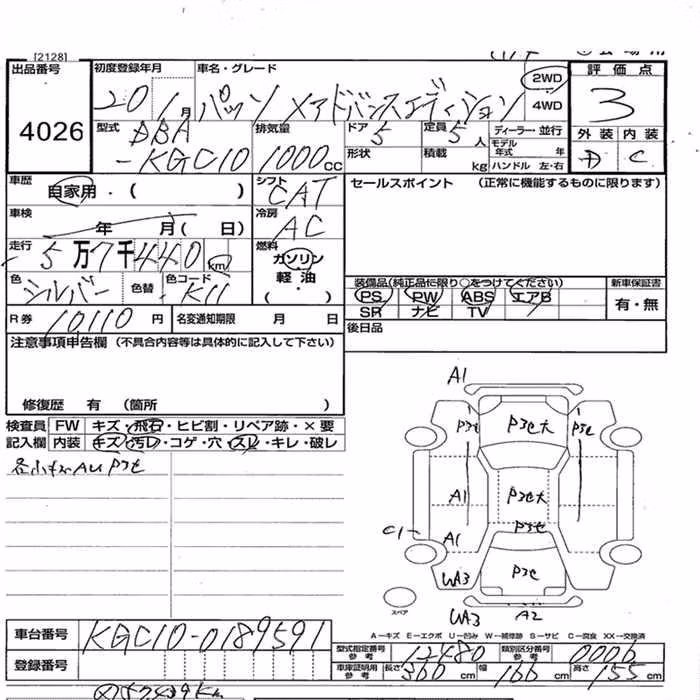 [2128]
出品番号
4026
初度登録年月
20 1月
車名・グレード
パッソ アドバンスエディション
2WD
4WD
評価点
3
外装 内装
D C
型式
DBA
-KGC10
排気量
1000cc
ドア
5
定員
5人
ディーラー・並行
モデル年式 年
形状
積載
kg
ハンドル 左・右
車歴
自家用・( )
シフト
CAT
セールスポイント (正常に機能するものに限ります)
車検
年 月( 日)
冷房
AC
走行
5万7千440km
燃料
ガソリン
軽油
( ・ )
色
シルバー
色替
色コード
装備品(純正品に限り○をつけてください)
PS PW ABS エアB
SR ナビ TV
新車保証書
有・無
R券
10110円
名変通知期限 月 日
後日品
注意事項申告欄 (不具合内容等は具体的に記入して下さい)
修復歴 有 (箇所 )
検査員
記入欄
FW キズ・飛石・ヒビ割・リペア跡・×要
内装 キズ・汚レ・コゲ・穴・スレ・キレ・破レ
A1
A1
A1
C1
WA3
WA3
A2
スペア
A-キズ E-エクボ U-凹み W-補修跡 S-サビ C-腐食 XX-交換済
車台番号
KGC10-0189591
登録番号
型式指定番号
参考
12480
類別区分番号
参考
0006
車庫証明用
参考
長さ 360cm
幅 166cm
高さ 155cm